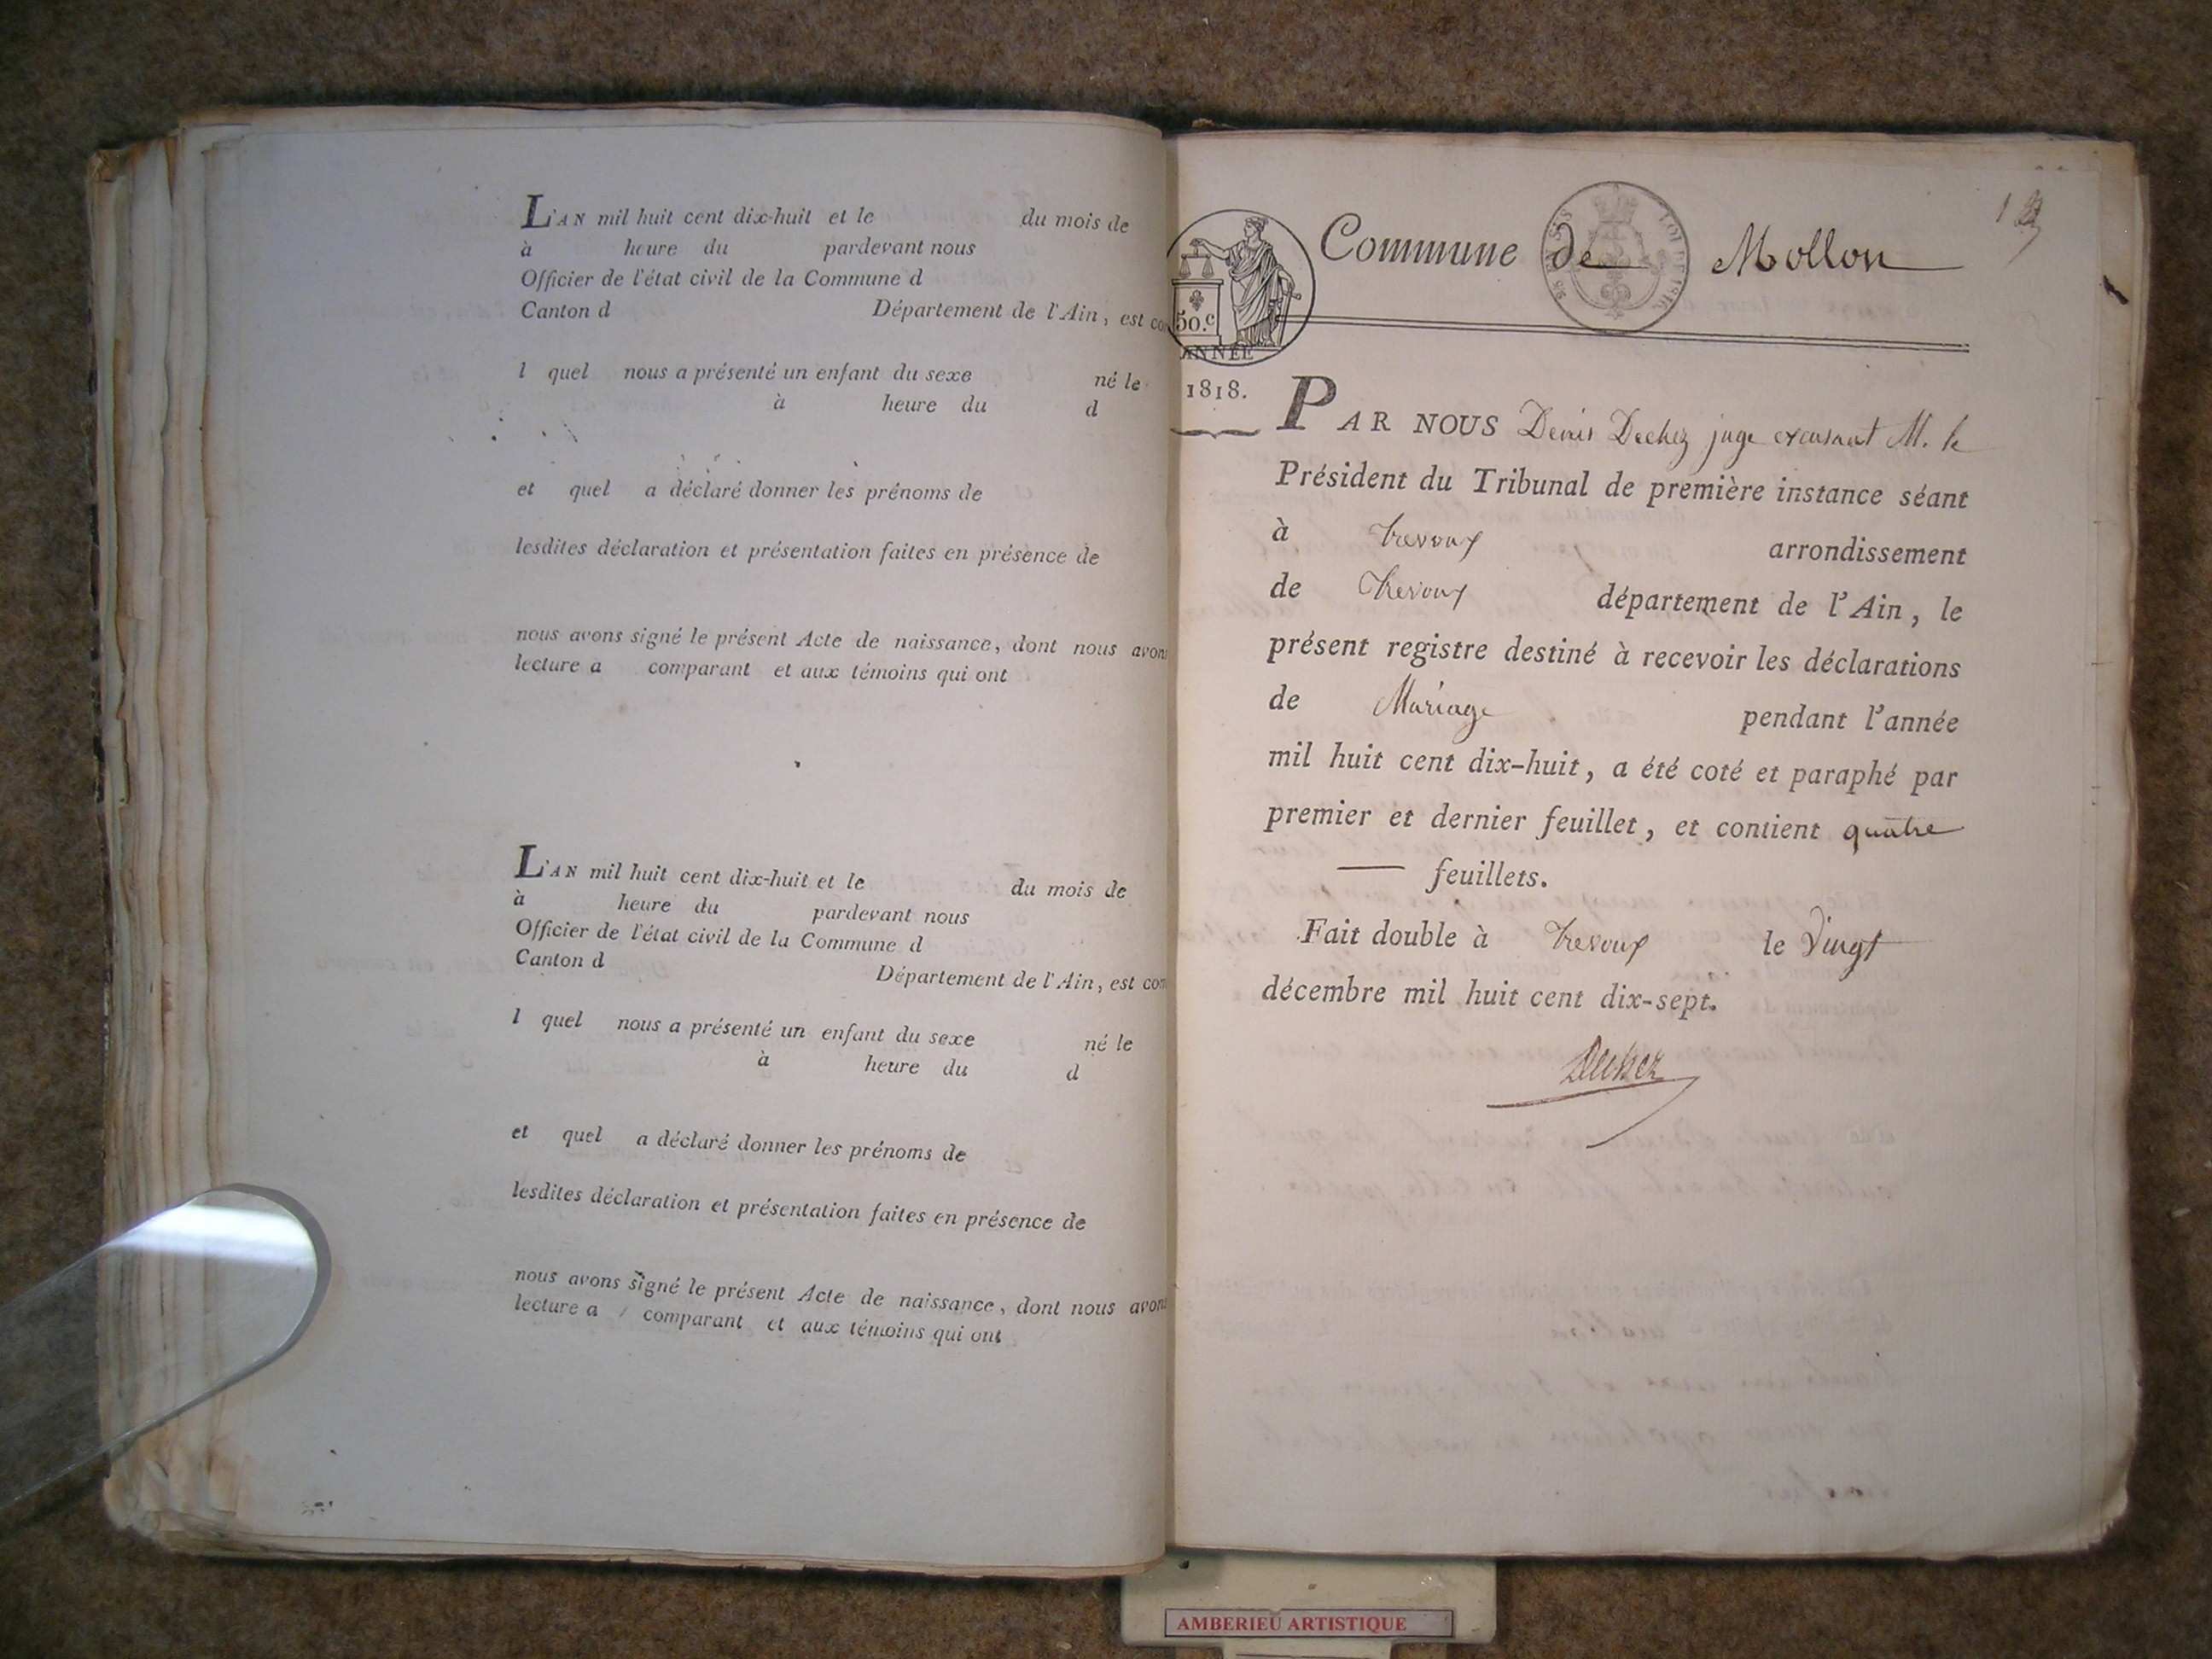 L'AN mil huit cent dix-huit et le du mois de
à heure du pardevant nous
Officier de l'état civil de la Commune d
Canton d Département de l'Ain, est
l quel nous a présenté un enfant du sexe né le
à heure du d
et quel a déclaré donner les prénoms de
lesdites déclaration et présentation faites en présence de
nous avons signé le présent Acte de naissance, dont nous avons
lecture a comparant et aux témoins qui ont
L'AN mil huit cent dix-huit et le du mois de
à heure du pardevant nous
Officier de l'état civil de la Commune d
Canton d Département de l'Ain, est
l quel nous a présenté un enfant du sexe né le
à heure du d
et quel a déclaré donner les prénoms de
lesdites déclaration et présentation faites en présence de
nous avons signé le présent Acte de naissance, dont nous avons
lecture a comparant et aux témoins qui ont
1
Commune de Mollon
50.c
ANNÉE
1818.
PAR NOUS Denis Dechez juge M. le
Président du Tribunal de première instance séant
à Trevoux arrondissement
de Trevoux département de l'Ain, le
présent registre destiné à recevoir les déclarations
de Mariage pendant l'année
mil huit cent dix-huit, a été coté et paraphé par
premier et dernier feuillet, et contient quatre
feuillets.
Fait double à Trevoux le Vingt
décembre mil huit cent dix-sept.
Dechez
AMBERIEU ARTISTIQUE